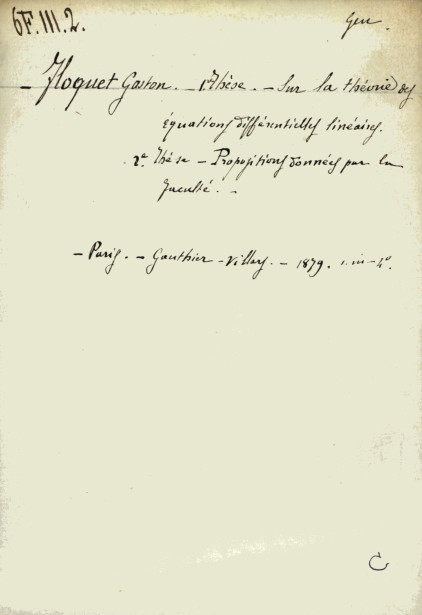 6F.III.2.
Gen.
— Floquet Gaston. — 1e Thèse. — Sur la théorie des
équations différentielles linéaires.
2e Thèse — Propositions données par la
Faculté. —
— Paris. — Gauthier-Villars. — 1879. 1. in-4º.
C